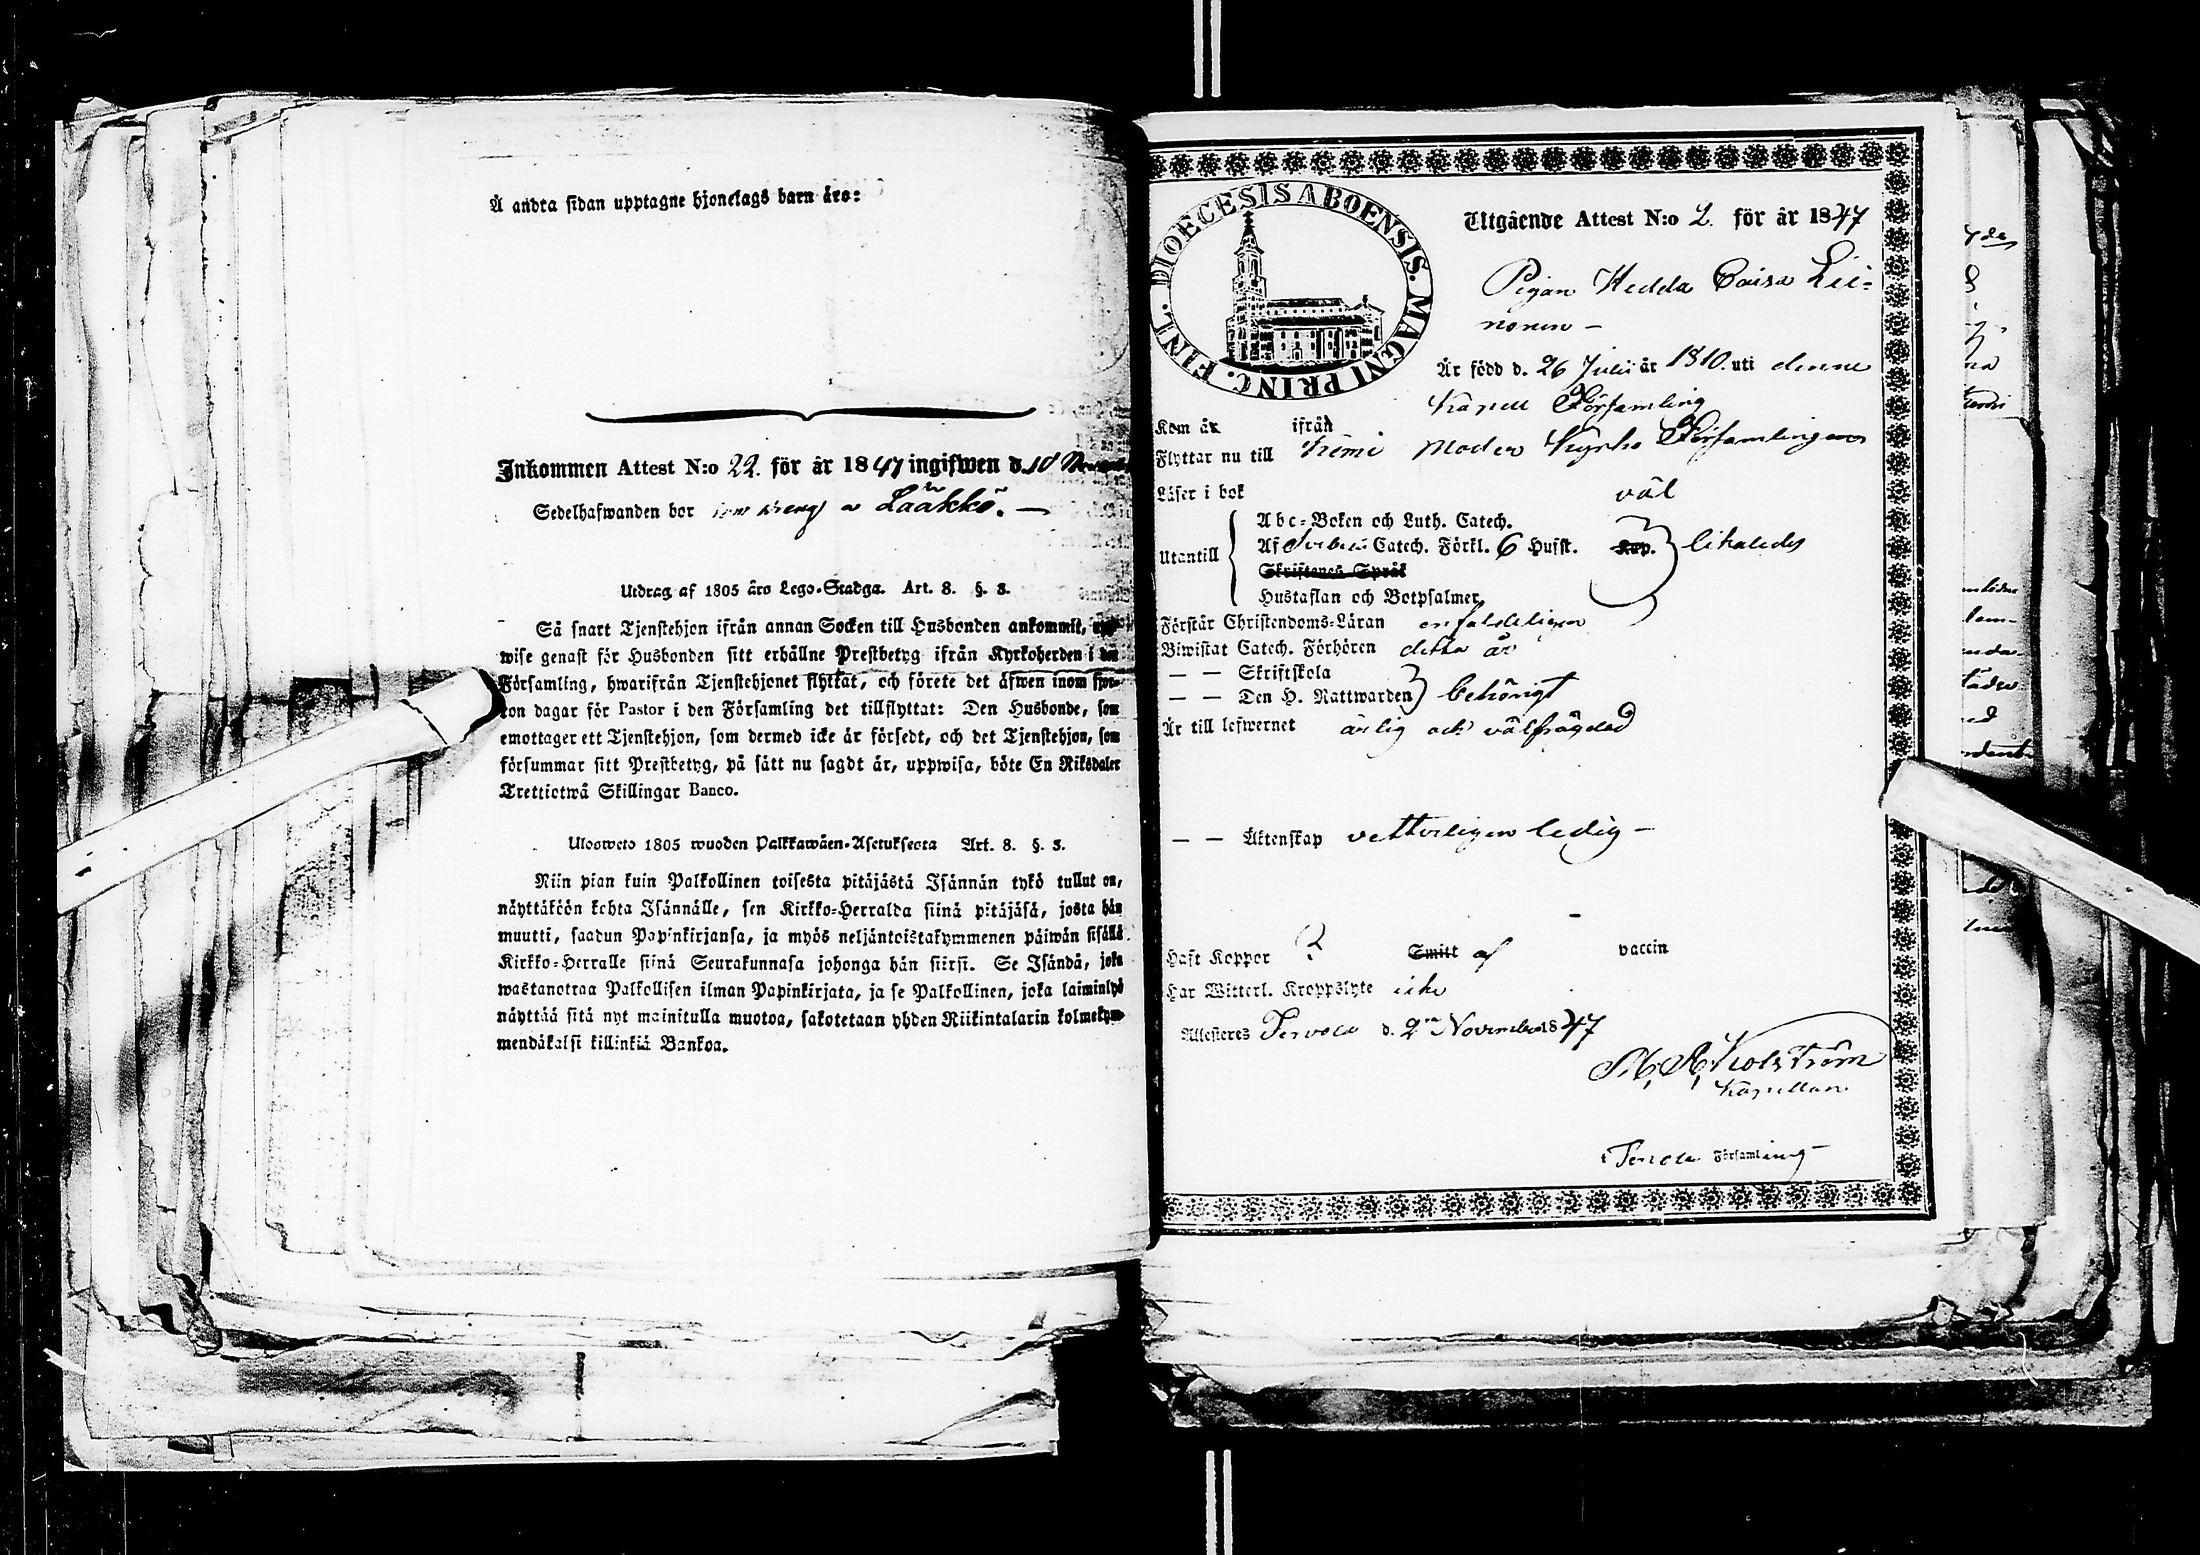 Å andra sidan upptagne hjonelags barn äro:
Inkommen Attest N:o 22. för år 1847 ingifwen d. 10
Sedelhafwanden bor som Laakko. —
Utdrag af 1805 års Lego-Stadga. Art. 8. §. 3.
Så snart Tjenstehjon ifrån annan Socken till Husbonden ankommit,
wise genast för Husbonden sitt erhållne Prestbetyg ifrån Kyrkoherden i
Församling, hwarifrån Tjenstehjonet flyttat, och förete det äfwen inom fjor-
ton dagar för Pastor i den Församling det tillflyttat: Den Husbonde, som
emottager ett Tjenstehjon, som dermed icke är försedt, och det Tjenstehjon, som
försummar sitt Prestbetyg, på sätt nu sagdt är, uppwisa, böte En Riksdaler
Trettiotwå Skillingar Banco.
Ulosweto 1805 wuoden Palkkawäen-Asetuksesta Art. 8. §. 3.
Niin pian kuin Palkollinen toisesta pitäjästä Isännän tykö tullut on,
näyttäköön kohta Isännälle, sen Kirkko-Herralda siinä pitäjäsä, josta hän
muutti, saadun Papinkirjansa, ja myös neljäntoistakymmenen päiwän sisällä
Kirkko-Herralle siinä Seurakunnasa johonga hän siirsi. Se Isändä, joka
wastanotraa Palkollisen ilman Papinkirjata, ja se Palkollinen, joka laiminlyö
näyttää sitä nyt mainitulla muotoa, sakotetaan yhden Riikintalarin kolmekym-
mendäkaksi killinkiä Bankoa.
DIOECESIS ABOENSIS. MAGNI PRINC. FINL.
Utgående Attest N:o 2. för år 1847
Pigan Hedda Caisa Lii-
nonen —
Är född d. 26 Julii år 1810. uti denne
Kapell Församling
Kom år ifrån
Flyttar nu till Kemi Moder Kyrko Församlingen
Läser i bok väl
Abc-Boken och Luth. Catech.
Utantill Af Svebelii Catech. Förkl. 6 Hufst. Kap. likaledes
Skriftenes Språk
Hustaflan och Botpsalmer,
Förstår Christendoms-Läran enfaldeligen
Biwistat Catech. Förhören detta år
— — Skriftskola
— — Den H. Nattwarden behörigt
Är till lefwernet ärlig och välfrägdad
— — Äktenskap vetterligen ledig —
Haft Koppor Smitt af vaccin
Har Witterl. Kroppslyte icke
Attesteras Tervola d. 2 November 1847
Kapellan.
i Tervola Församling —